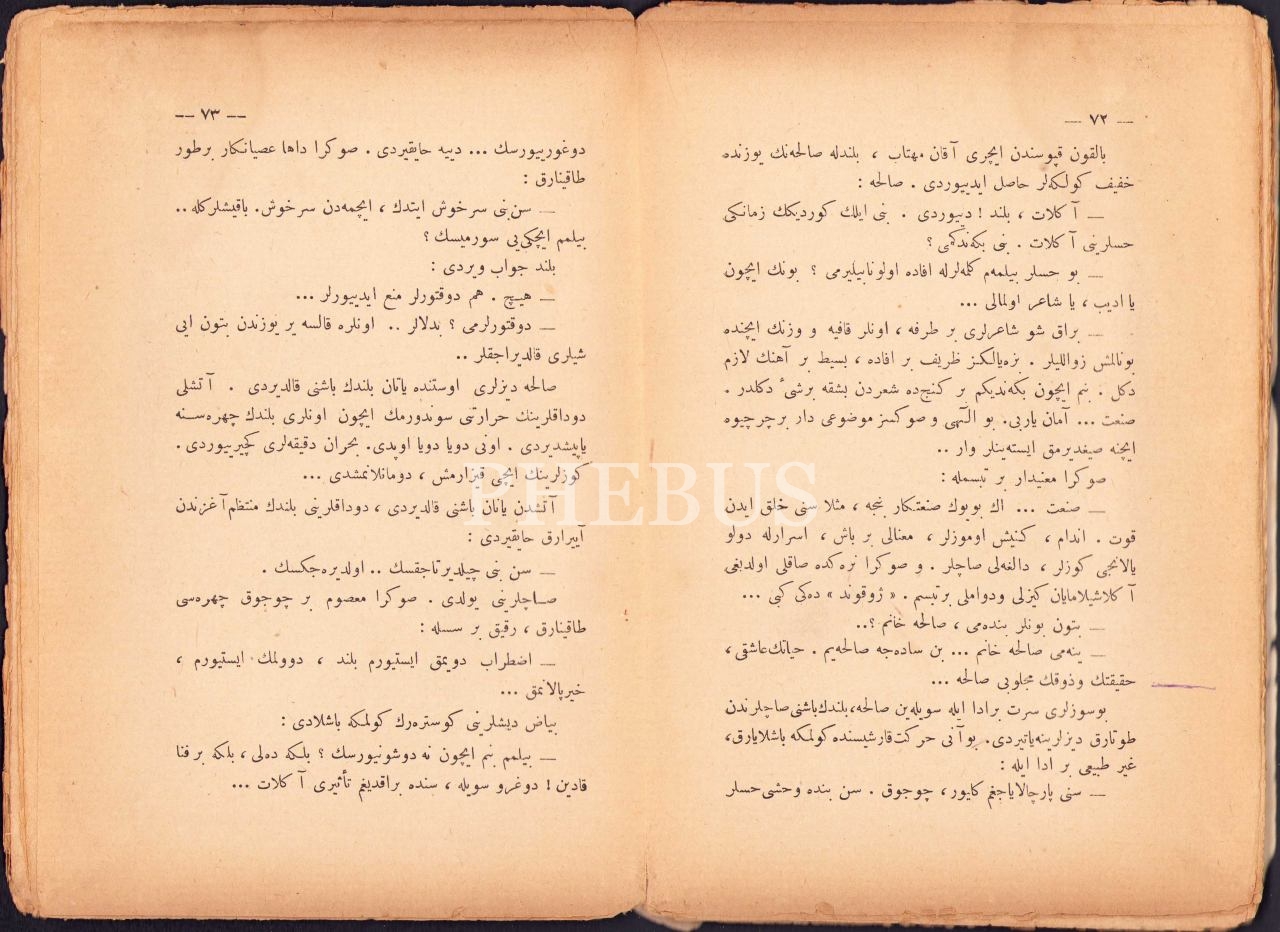 — ٧٢ —
بالقون قپوسندن ايچرى آقان مهتاب ، بلندله صالحه‌نك يوزنده
خفيف كولكه‌لر حاصل ايدييوردى . صالحه :
— آكلات ، بلند ! دييوردى . بنى ايلك كورديكك زمانكى
حسلرينى آكلات . بنى بكه‌ندكمى ؟
— بو حسلر بيلمه‌م كلمه‌لرله افاده اولونابيليرمى ؟ بونك ايچون
يا اديب ، يا شاعر اولمالى ...
— براق شو شاعرلرى بر طرفه ، اونلر قافيه و وزنك ايچنده
بونالمش زوالليلر . بزه‌يالكز ظريف بر افاده ، بسيط بر آهنك لازم
دكل . بنم ايچون بكه‌نديكم بر كنج‌ده شعردن بشقه برشىٴ دكلدر .
صنعت ... آمان ياربى. بو الٓهى و صوكسز موضوعى دار برچرچيوه
ايچنه صيغديرمق ايسته‌ينلر وار ..
صوكرا معنيدار بر تبسمله :
— صنعت ... اك بويوك صنعتكار بنجه ، مثلا سنى خلق ايدن
قوت . اندام ، كنيش اوموزلر ، معنالى بر باش ، اسرارله دولو
يالانجى كوزلر ، دالغه‌لى صاچلر . و صوكرا نره‌كده صاقلى اولديغى
آكلاشيلامايان كيزلى ودواملى برتبسم . « ژوقوند » ده‌كى كبى ...
— بتون بونلر بنده‌مى ، صالحه خانم ؟..
— ينه‌مى صالحه خانم ... بن ساده‌جه صالحه‌يم . حياتك‌عاشقى ،
حقيقتك وذوقك مجلوبى صالحه ...
بوسوزلرى سرت برادا ايله سويله‌ين صالحه، بلندك‌باشنى‌صاچلرندن
طوتارق ديزلرينه‌ياتيردى. بوآنى حركت‌قارشيسنده كولمكه باشلايارق،
غير طبيعى بر ادا ايله :
— سنى پارچالاياجغم كليور، چوجوق . سن بنده وحشى‌حسلر
— ٧٣ —
دوغورييورسك ... دييه حايقيردى . صوكرا داها عصيانكار برطور
طاقينارق :
— سن‌بنى سرخوش ايتدك ، ايچمه‌دن سرخوش. باقيشلركله ..
بيلمم ايچكى‌يى سورميسك ؟
بلند جواب ويردى :
— هيچ . هم دوقتورلر منع ايدييورلر ...
— دوقتورلرمى ؟ بدلالر .. اونلره قالسه ير يوزندن بتون ايى
شيلرى قالديراجقلر ..
صالحه ديزلرى اوستنده ياتان بلندك باشنى قالديردى . آتشلى
دوداقلرينك حرارتى سوندورمك ايچون اونلرى بلندك چهره‌سنه
ياپيشديردى . اونى دويا دويا اوپدى. بحران دقيقه‌لرى كچيرييوردى .
كوزلرينك ايچى قيزارمش ، دومانلانمشدى ...
آتشدن يانان باشنى قالديردى ، دوداقلرينى بلندك منتظم‌آغزندن
آييرارق حايقيردى :
— سن بنى چيلديرتاجقسك .. اولديره‌جكسك .
صاچلرينى يولدى . صوكرا معصوم بر چوجوق چهره‌سى
طاقينارق ، رقيق بر سسله :
— اضطراب دويمق ايستيورم بلند ، دوولمك ايستيورم ،
خيرپالانمق ...
بياض ديشلرينى كوستره‌رك كولمكه باشلادى :
— بيلمم بنم ايچون نه دوشونيورسك ؟ بلكه ده‌لى ، بلكه بر فنا
قادين ! دوغرو سويله ، سنده براقديغم تأثيرى آكلات ...
PHEBUS